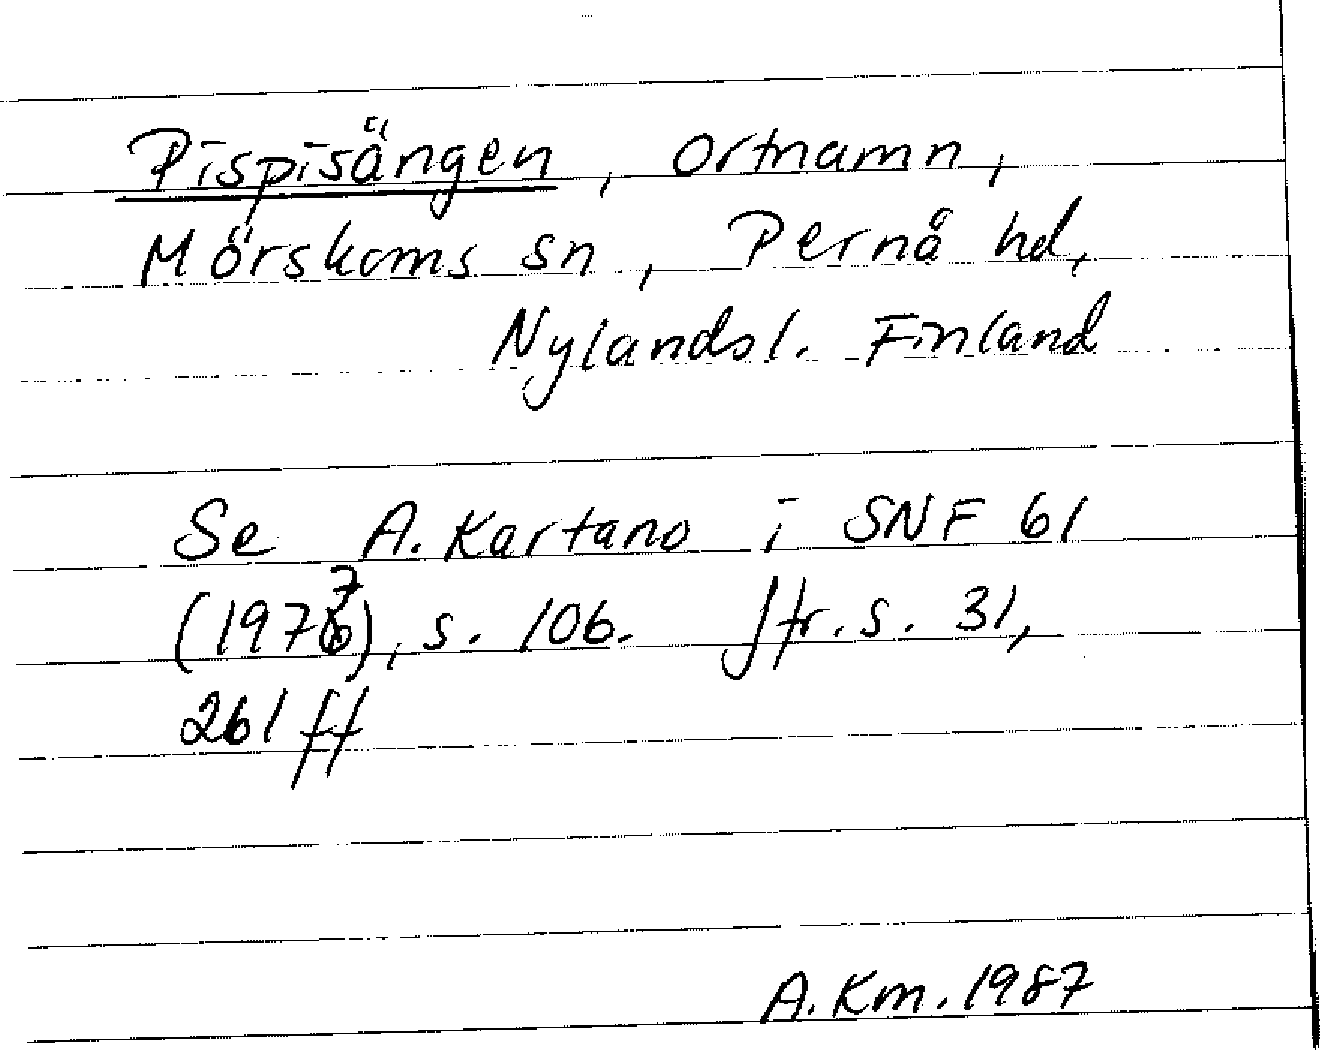 Pispisängen, ortnamn,
Mörskoms sn, Pernå hd,
Nylandsl. Finland
Se A. Kartano i SNF 61
(1977), s. 106. Jfr. s. 31,
261 ff
A. Km. 1987